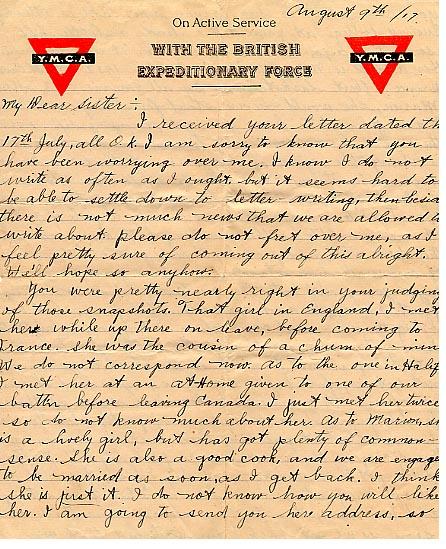 August 9th /17.
On Active Service
WITH THE BRITISH
EXPEDITIONARY FORCE
Y.M.C.A.
Y.M.C.A.
My Dear Sister:
I received your letter dated th
17th July, all O.K. I am sorry to know that you
have been worrying over me. I know I do not
write as often as I ought. but it seems hard to
be able to settle down to letter writing, then besid
there is not much news that we are allowed to
write about. please do not fret over me, as I
feel pretty sure of coming out of this alright.
We'll hope so anyhow.
You were pretty nearly right in your judging
of those snapshots. That girl in England, I met
her while up there on leave, before coming to
France. She was the cousin of a chum of min
We do not correspond now. as to the one in Halif
I met her at an at Home given to one of our
battn before leaving Canada. I just met her twice
so do not know much about her. As to Marion, sh
is a lively girl, but has got plenty of common
sense. She is also a good cook, and we are engage
to be married as soon, as I get back. I think
she is first it. I do not know how you will like
her. I am going to send you here address, so